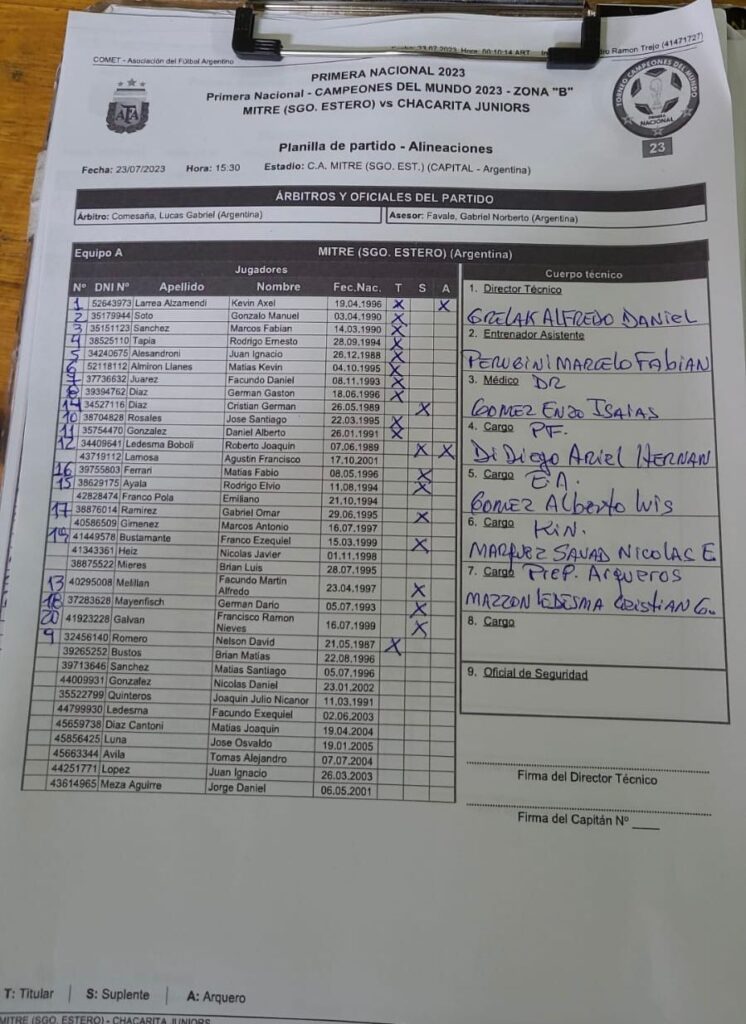 COMET - Asociación del Fútbol Argentino
23.07.2023 Hora: 00:10:14 ART
Ramon Trejo (41471727)
PRIMERA NACIONAL 2023
Primera Nacional - CAMPEONES DEL MUNDO 2023 - ZONA "B"
MITRE (SGO. ESTERO) vs CHACARITA JUNIORS
AFA
TORNEO CAMPEONES DEL MUNDO
PRIMERA NACIONAL
23
Planilla de partido - Alineaciones
Fecha: 23/07/2023 Hora: 15:30 Estadio: C.A. MITRE (SGO. EST.) (CAPITAL - Argentina)
ÁRBITROS Y OFICIALES DEL PARTIDO
Árbitro: Comesaña, Lucas Gabriel (Argentina) Asesor: Favale, Gabriel Norberto (Argentina)
Equipo A MITRE (SGO. ESTERO) (Argentina)
Jugadores
Nº DNI Nº Apellido Nombre Fec.Nac. T S A
1 52643973 Larrea Alzamendi Kevin Axel 19.04.1996 X X
2 35179944 Soto Gonzalo Manuel 03.04.1990 X
3 35151123 Sanchez Marcos Fabian 14.03.1990 X
4 38525110 Tapia Rodrigo Ernesto 28.09.1994 X
5 34240675 Alesandroni Juan Ignacio 26.12.1988 X
6 52118112 Almiron Llanes Matias Kevin 04.10.1995 X
7 37736632 Juarez Facundo Daniel 08.11.1993 X
8 39394762 Diaz German Gaston 18.06.1996 X
14 34527116 Diaz Cristian German 26.05.1989 X
10 38704828 Rosales Jose Santiago 22.03.1995 X
11 35754470 Gonzalez Daniel Alberto 26.01.1991 X
12 34409641 Ledesma Boboli Roberto Joaquin 07.06.1989 X X
43719112 Lamosa Agustin Francisco 17.10.2001
16 39755803 Ferrari Matias Fabio 08.05.1996 X
15 38629175 Ayala Rodrigo Elvio 11.08.1994 X
42828474 Franco Pola Emiliano 21.10.1994
17 38876014 Ramirez Gabriel Omar 29.06.1995 X
40586509 Gimenez Marcos Antonio 16.07.1997
19 41449578 Bustamante Franco Ezequiel 15.03.1999 X
41343361 Heiz Nicolas Javier 01.11.1998
38875522 Mieres Brian Luis 28.07.1995
13 40295008 Melillan Facundo Martin Alfredo 23.04.1997 X
18 37283628 Mayenfisch German Dario 05.07.1993 X
20 41923228 Galvan Francisco Ramon Nieves 16.07.1999 X
9 32456140 Romero Nelson David 21.05.1987 X
39265252 Bustos Brian Matías 22.08.1996
39713646 Sanchez Matias Santiago 05.07.1996
44009931 Gonzalez Nicolas Daniel 23.01.2002
35522799 Quinteros Joaquin Julio Nicanor 11.03.1991
44799930 Ledesma Facundo Exequiel 02.06.2003
45659738 Diaz Cantoni Matias Joaquin 19.04.2004
45856425 Luna Jose Osvaldo 19.01.2005
45663344 Avila Tomas Alejandro 07.07.2004
44251771 Lopez Juan Ignacio 26.03.2003
43614965 Meza Aguirre Jorge Daniel 06.05.2001
Cuerpo técnico
1. Director Técnico
GRELAK ALFREDO DANIEL
2. Entrenador Asistente
PERUBINI MARCELO FABIAN
3. Médico DR
GOMEZ ENZO ISAIAS
4. Cargo PF.
DI DIEGO ARIEL HERNAN
5. Cargo E.A.
GOMEZ ALBERTO LUIS
6. Cargo KIN.
MARQUEZ SAVAD NICOLAS E
7. Cargo PREP. ARQUEROS
MAZZON LEDESMA CRISTIAN G.
8. Cargo
9. Oficial de Seguridad
Firma del Director Técnico
Firma del Capitán Nº ____
T: Titular | S: Suplente | A: Arquero
MITRE (SGO. ESTERO) - CHACARITA JUNIORS